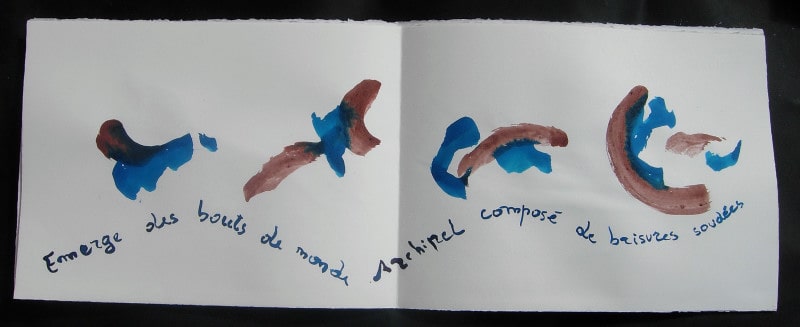 Emerge des bouts de monde Archipel composé de brisures soudées